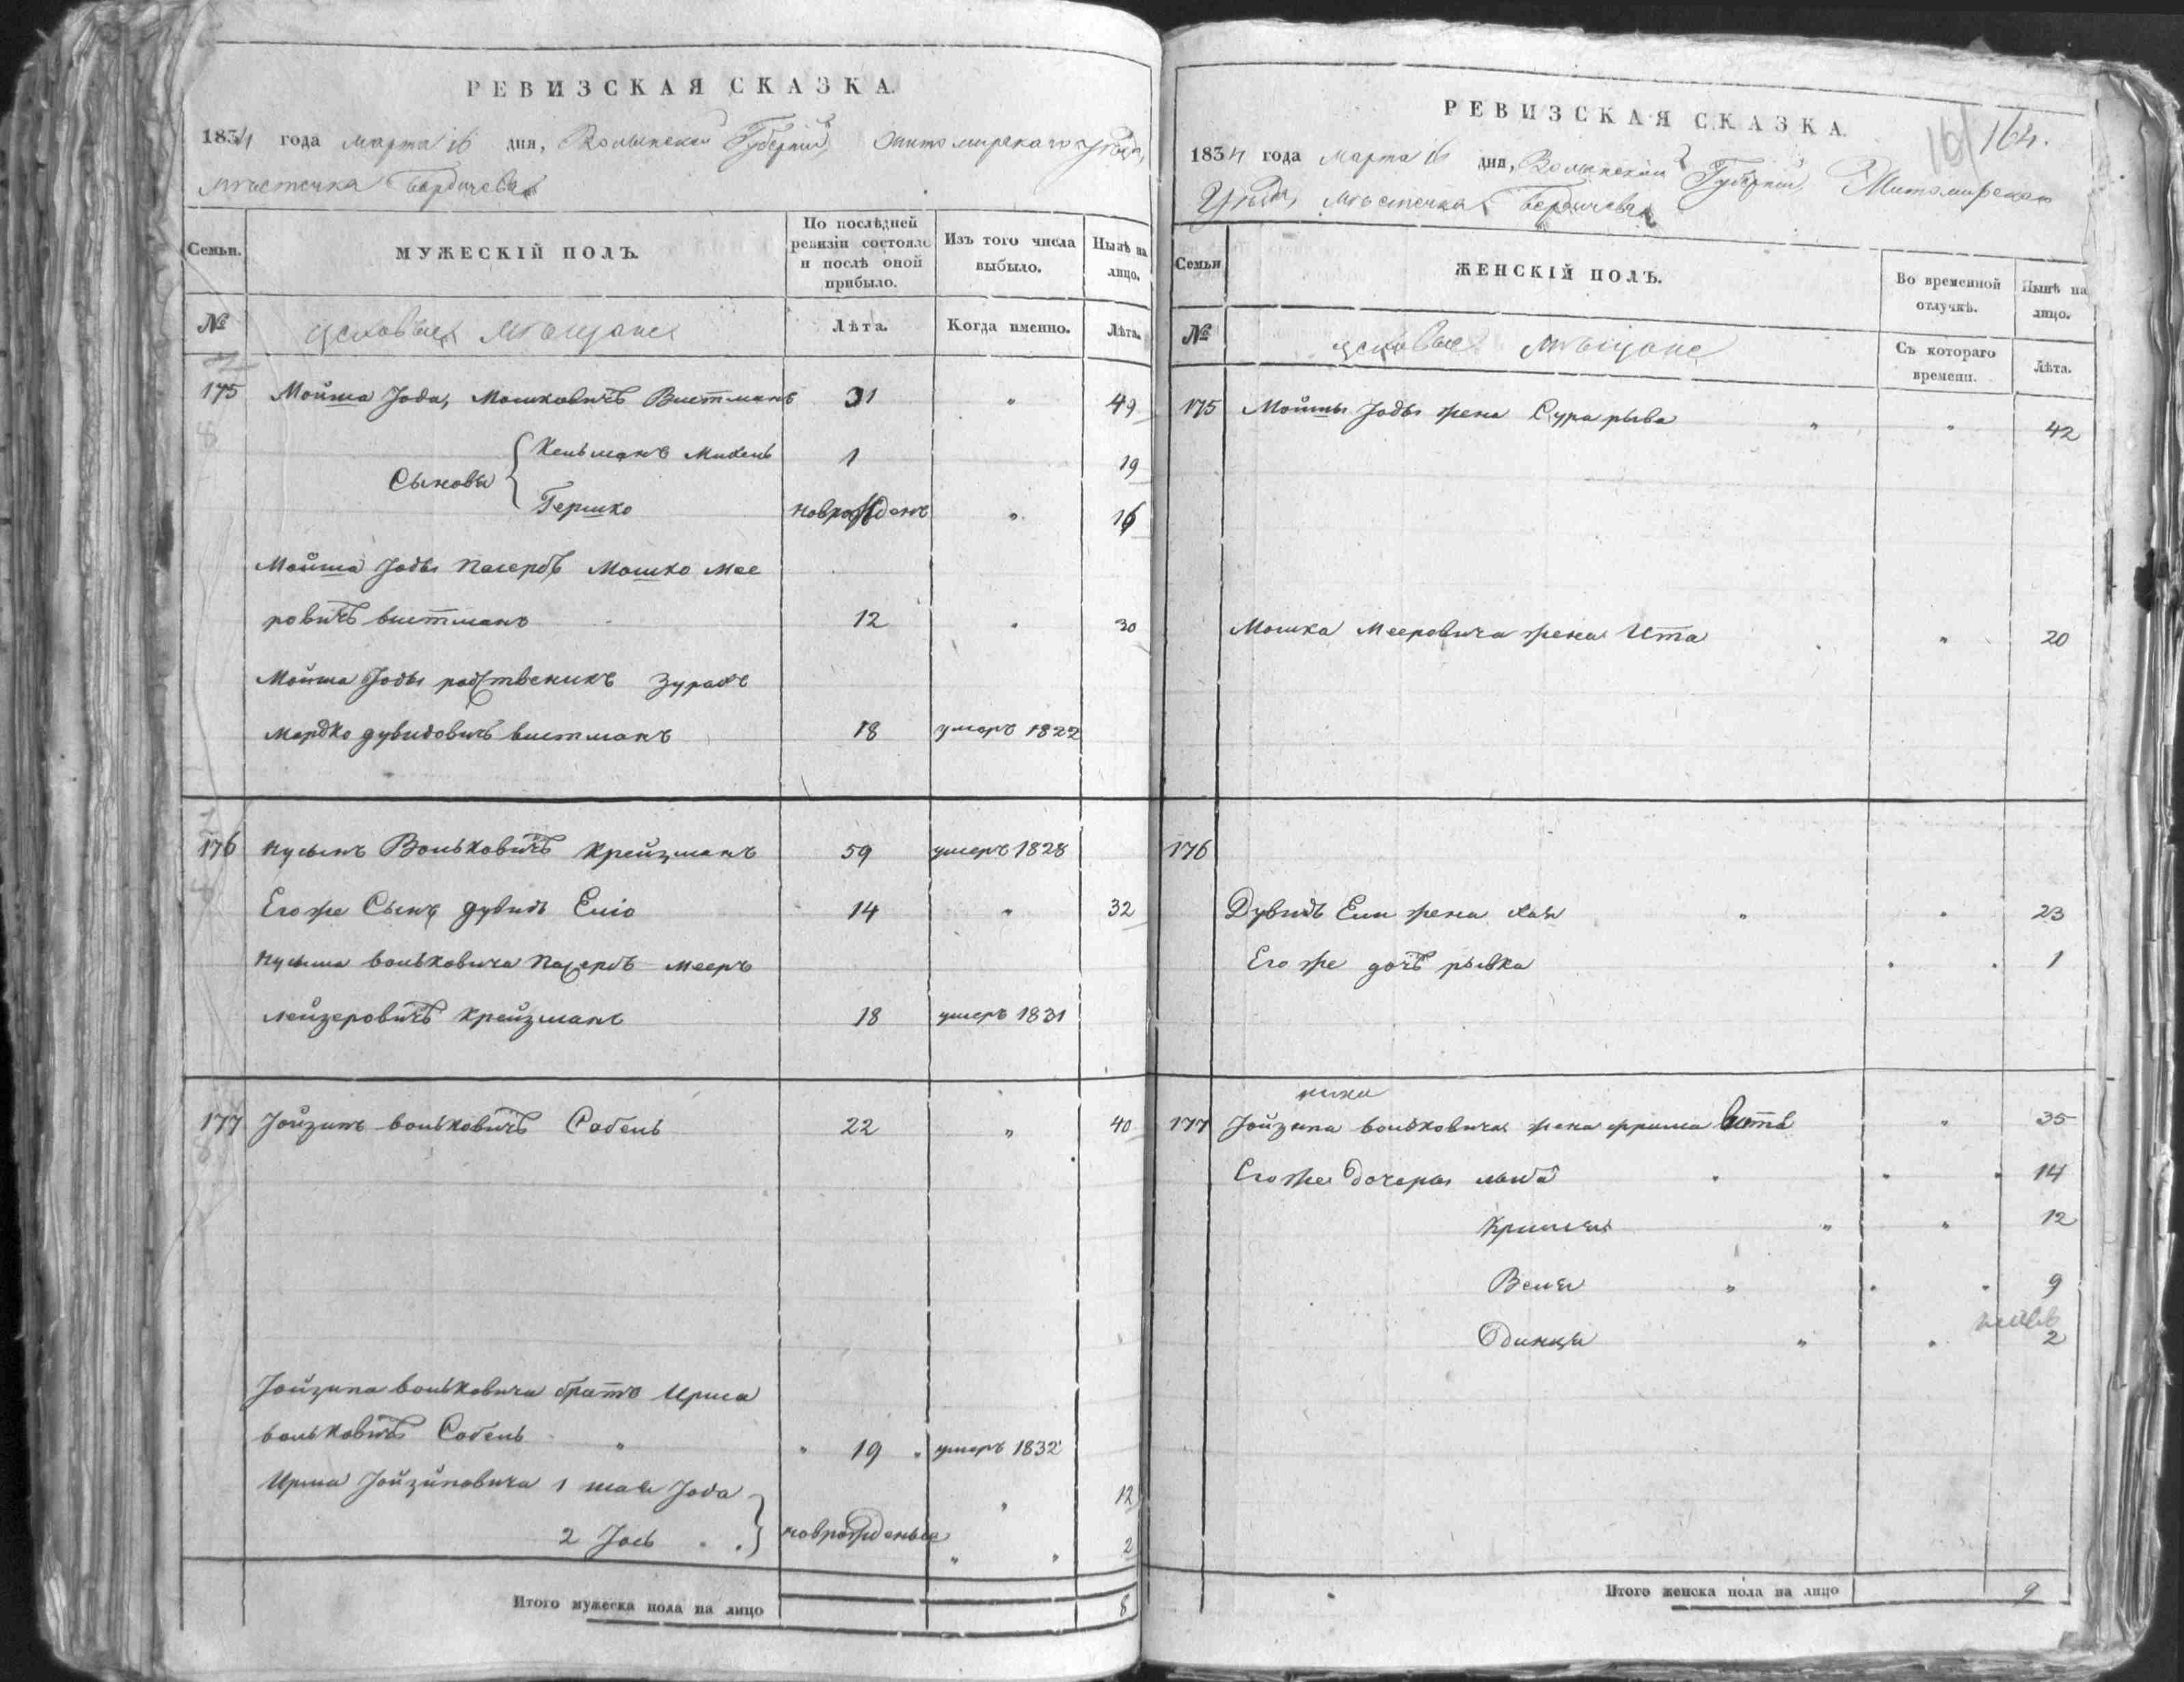 РЕВИЗСКАЯ СКАЗКА.
1834 года марта 16 дня, Волынской Губернии, Житомирского уезда,
местечка Бердичева
Семьи.
МУЖЕСКІЙ ПОЛЪ.
По послѣдней ревизіи состояло и послѣ оной прибыло.
Изъ того числа выбыло.
Нынѣ на лицо.
№
цеховые мѣщане
Лѣта.
Когда именно.
Лѣта.
175 Мойша Іода, Мошковичъ Витманъ 31 " 49
Сыновья { Кельманъ Михель 1 19
Гершко новрожденъ " 16
Мойша Іоды пасербъ Мошко Мее
ровичъ витманъ 12 " 30
Мойша Іоды родственикъ Зурахъ
Мордко дувидовичъ витманъ 18 умеръ 1822
176 Нусынъ Вольковичъ Крейзманъ 59 умеръ 1828
Его же Сынъ дувидъ Еліо 14 " 32
Нусыма вольковича пасербъ Мееръ
лейзеровичъ крейзманъ 18 умеръ 1831
177 Іойзипъ вольковичъ Собель 22 " 40
Іойзипа вольковича братъ Ирша
вольковичъ Собель " " 19 умеръ 1832
Ирша Іойзиповича 1 шая Іода } " 12
2 Іось } новрожденые " " 2
Итого мужеска пола на лицо 8
РЕВИЗСКАЯ СКАЗКА.
164.
1834 года марта 16 дня, Волынской Губернии, Житомирскаго
Уезда, местечка Бердичева
Семьи
ЖЕНСКІЙ ПОЛЪ.
Во временной отлучкѣ.
Нынѣ на лицо.
№
цеховые мѣщане
Съ котораго времени.
Лѣта.
175 Мойшы Іоды жена Сура рыва " " 42
Мошка Мееровича жена Ита " 20
176
Дувидъ Ели жена хая " " 23
Его же дочь рывка " " 1
177 Іойзипа вольковича жена фрима " 35
Его же дочеры " " " 14
" " 12
Веня " " " 9
Одинця " " 2
Итого женска пола на лицо 9